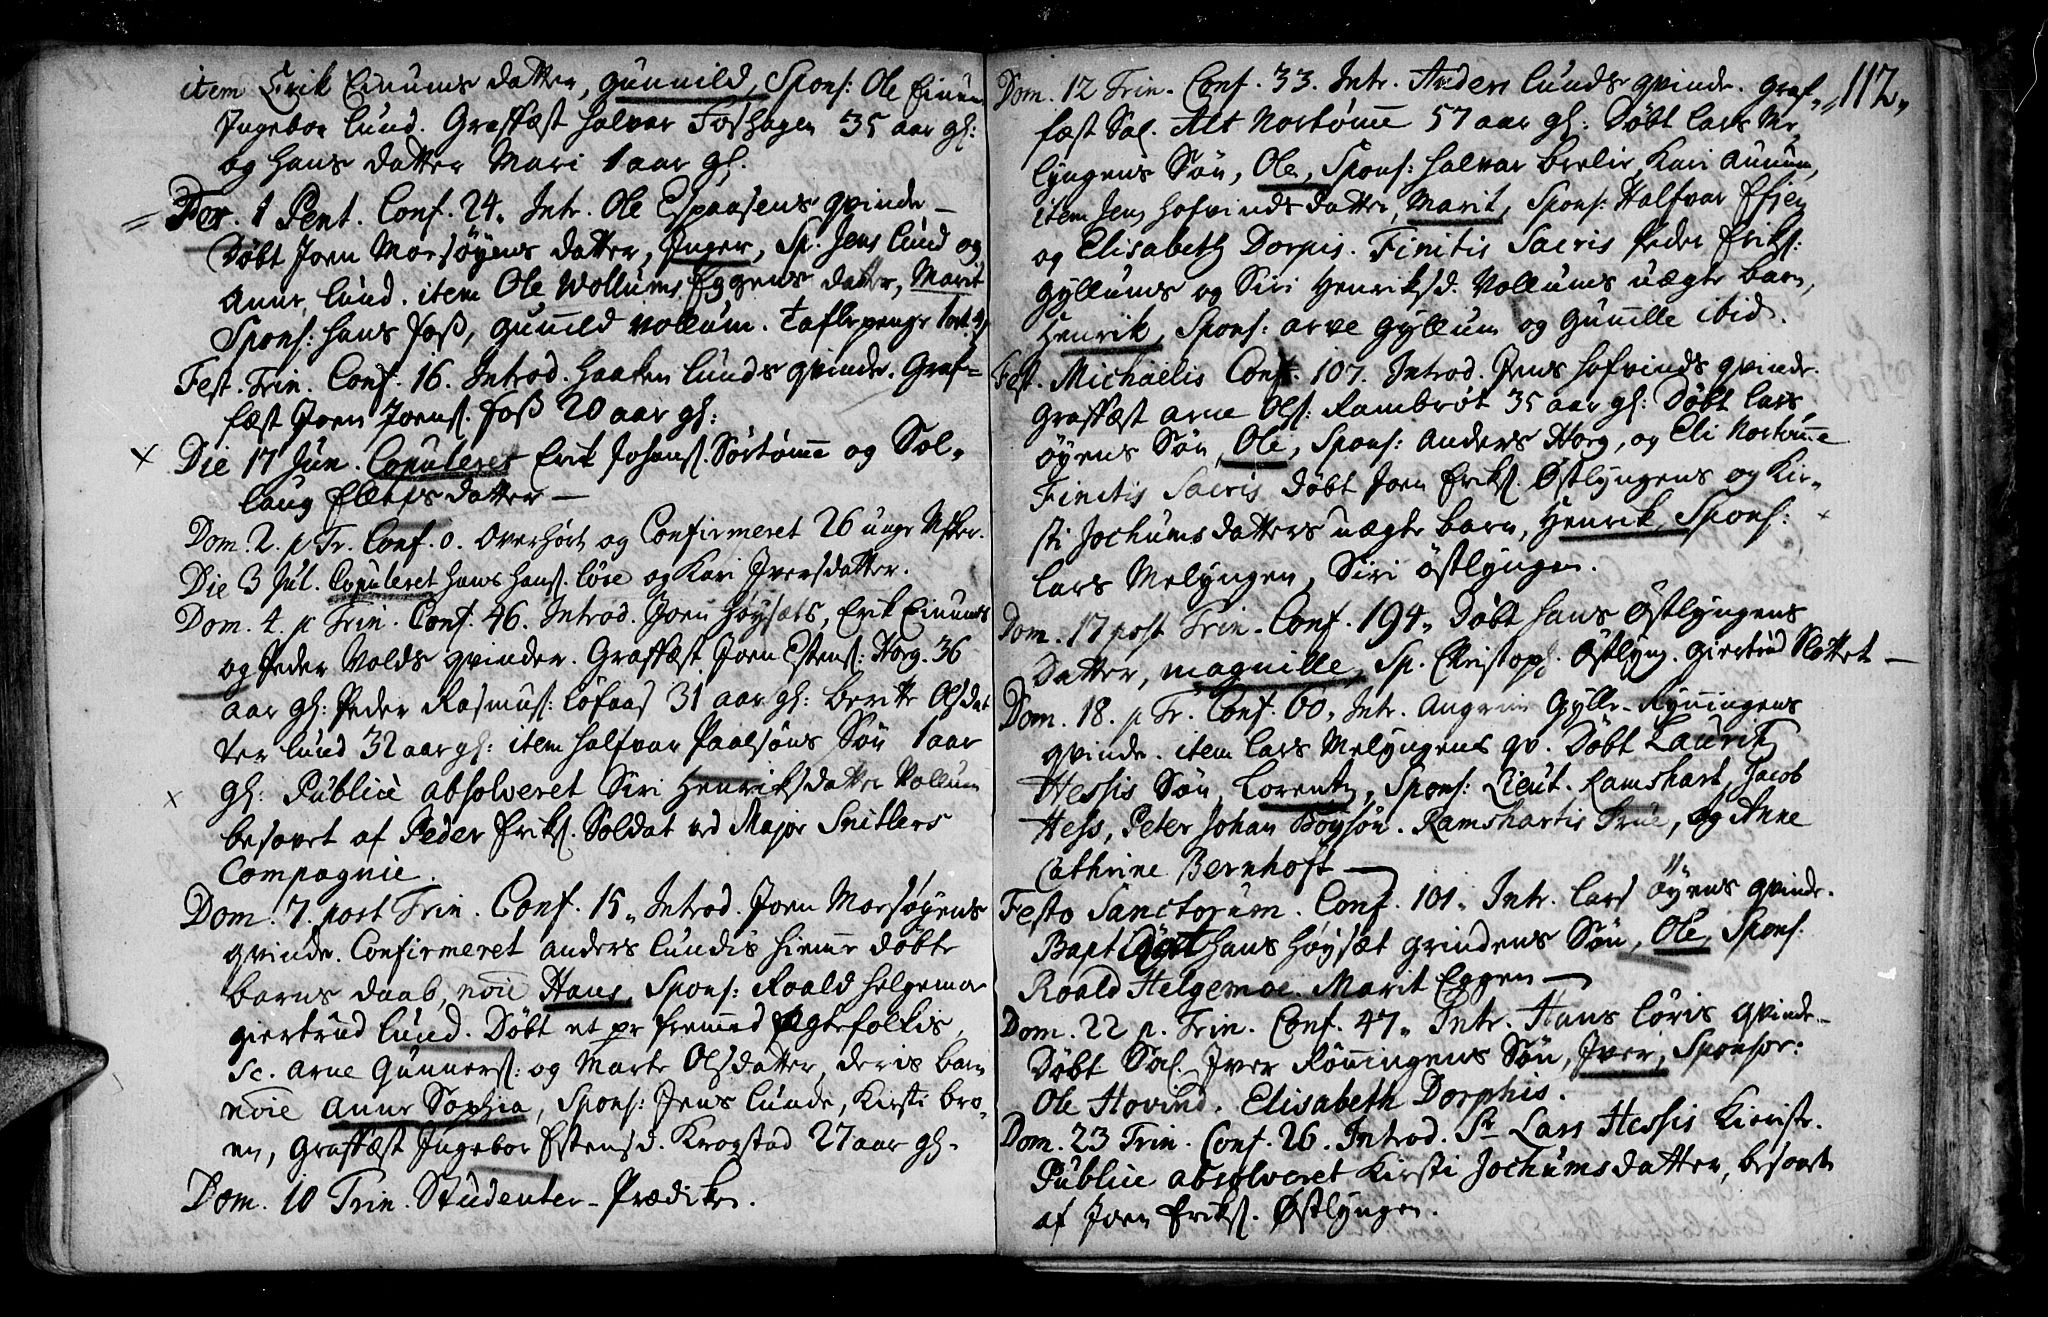 item Erik Einums datter, Gunnild, Spons: Ole Einum
Ingebor Lund. Graffæst Halvar Foshagen 35 aar gl:
og hans datter Mari 1 aar gl.
Fer. 1 Pent. Conf. 24. Intr. Ole Espaasens qvinde —
Døbt Joen Morsøyens datter, Inger, Sp. Jens Lund og
Anne Lund. item Ole Wollums Eggens datter, Marit
Spons: Hans Foss, Gunnild Vollum. Taflepenge 1 ort.
Fest. Trin. Conf. 16. Introd. Haaken Lunds qvinde. Graf=
fæst Joen Joens. Foss 20 aar gl:
Die 17 Jun. Copuleret Erik Johans. Sørtømme og Sol-
laug datter —
Dom. 2. p Tr. Conf. 0. Overhørt og Confirmeret 26 unge
Die 3 Jul. Copuleret Hans Hans. Løre og Kari Iversdatter.
Dom. 4. p Trin. Conf. 46. Introd. Joen Høysæts, Erik Einums
og Peder Volds qvinder. Graffæst Joen Estens: Horg. 36
aar gl: Peder Rasmus: Løfaas 31 aar gl: Beritte Olsdat
ter Lund 32 aar gl: item Halfvar Paalsøns Søn 1 aar
gl: Publicè absolveret Siri Henriksdatter Vollum
besovet af Peder Eriks. Soldat ved Major Snitlers
Compagnie.
Dom. 7. post Trin. Conf. 15. Introd. Joen Morsøyens
qvinde. Confirmeret Anders Lundis hiemme døbte
barns daab, noie Hans, Spons: Roald Helgemoe
Giertrud Lund. Døbt et pr fremmed Ægtefolkis,
Sc. Arne Gunners: og Marte Olsdatter, deris barn
noie Anne Sophia, Spons: Jens Lunde, Kirsti Bro-
en, Graffæst Ingebor Estensd. Krogstad 27 aar gl.
Dom. 10 Trin. Studenter-Prædiken.
Dom. 12 Trin. Conf. 33. Intr. Anders Lunds qvinde. Graf- 112.
fæst Sal. Alt Nortømme 57 aar gl: Døbt Lars Me-
lyngens Søn, Ole, Spons: Halvar Brelie, Kari
item Jens Hofvinds datter, Marit, Spons: Halfvar
og Elisabeth Dorpis. Finitis Sacris Peder Eriks:
Gyllums og Siri Henriksd. Vollums uægte barn,
Henrik, Spons: Arve Gyllum og Gunnille ibid.
Fest. Michaelis Conf. 107. Introd. Jens Hofvinds qvinde.
Graffæst Arne Ols: Rambrøt 35 aar gl: Døbt Lars
Øyens Søn, Ole, Spons: Anders Horg, og Eli Nortømme
Finitis Sacris døbt Joen Eriks. Østlyngens og Kir-
sti Jochumsdatters uægte barn, Henrik, Spons:
Lars Melyngen, Siri Østlyngen.
Dom. 17 post Trin. Conf. 194. Døbt Hans Østlyngens
Datter, Magnille, Sp. Christoph. Østlyng. Giertrud Slottet —
Dom. 18. p Tr. Conf. 60. Intr. Gylle-Rynningens
qvinde. item Lars Melyngens qv. Døbt Lauritz
Hessis Søn, Lorentz, Spons: Lieut. Ramshart, Jacob
Hess, Peter Johan Boysøn. Ramshartis Frue, Og Anne
Cathrine Bernhoft —
Festo Sanctorum. Conf. 101. Intr. Lars Øyens qvinde.
Bapt Hans Høysæt grindens Søn, Ole, Spons:
Roald Helgemoe. Marit Eggen —
Dom. 22 p. Trin. Conf. 47. Intr. Hans Løris qvinde.
Døbt Sal. Iver Rønningens Søn, Iver, Sponsor:
Ole Hovind. Elisabeth Dorphis.
Dom. 23 Trin. Conf. 26. Introd. Sr Lars Hessis Kieriste.
Publice absolveret Kirsti Jochumsdatter, besovet
af Joen Eriks. Østlyngen.